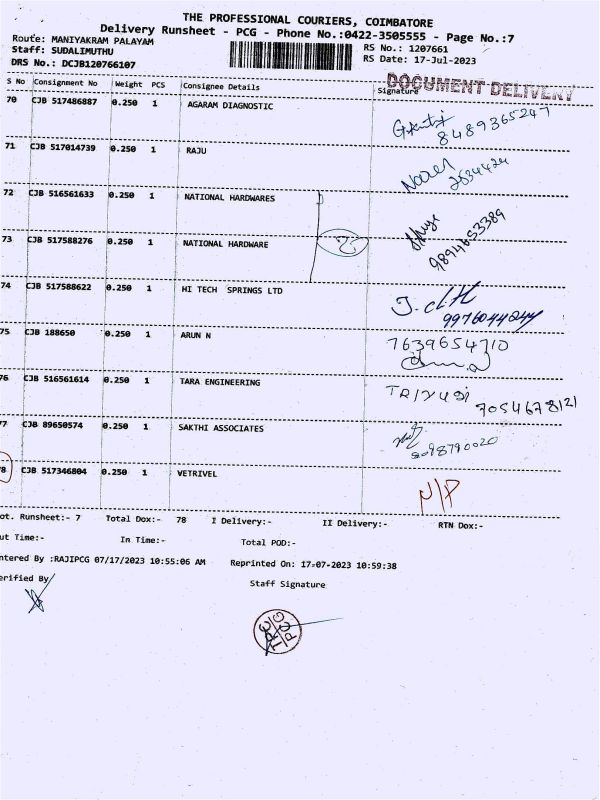 THE PROFESSIONAL COURIERS, COIMBATORE
Delivery Runsheet - PCG - Phone No.:0422-3505555 - Page No.:7
Route: MANIYAKRAM PALAYAM
RS No.: 1207661
Staff: SUDALIMUTHU
RS Date: 17-Jul-2023
DRS No.: DCJB120766107
DOCUMENT DELIVERY
S No Consignment No Weight PCS Consignee Details Signature
70 CJB 517486887 0.250 1 AGARAM DIAGNOSTIC
8489365247
71 CJB 517014739 0.250 1 RAJU
2634424
72 CJB 516561633 0.250 1 NATIONAL HARDWARES
73 CJB 517588276 0.250 1 NATIONAL HARDWARE
9894653389
74 CJB 517588622 0.250 1 HI TECH SPRINGS LTD
9976044044
75 CJB 188650 0.250 1 ARUN N
7639654710
76 CJB 516561614 0.250 1 TARA ENGINEERING
7054678121
77 CJB 89650574 0.250 1 SAKTHI ASSOCIATES
9098790020
78 CJB 517346804 0.250 1 VETRIVEL
N/P
ot. Runsheet:- 7 Total Dox:- 78 I Delivery:- II Delivery:- RTN Dox:-
ut Time:- In Time:- Total POD:-
ntered By :RAJIPCG 07/17/2023 10:55:06 AM Reprinted On: 17-07-2023 10:59:38
erified By
Staff Signature